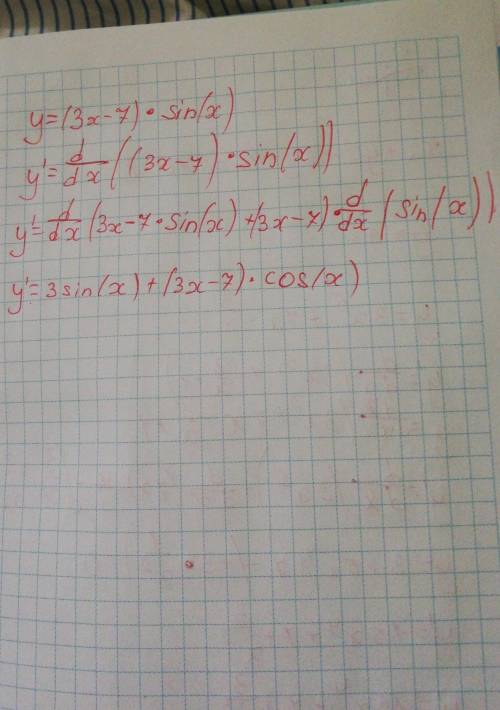 y=(3x-7)·sin(x)
y'=d/dx((3x-7)·sin(x))
y'=d/dx(3x-7·sin(x)+(3x-7)·d/dx(sin(x))
y'=3sin(x)+(3x-7)·cos(x)